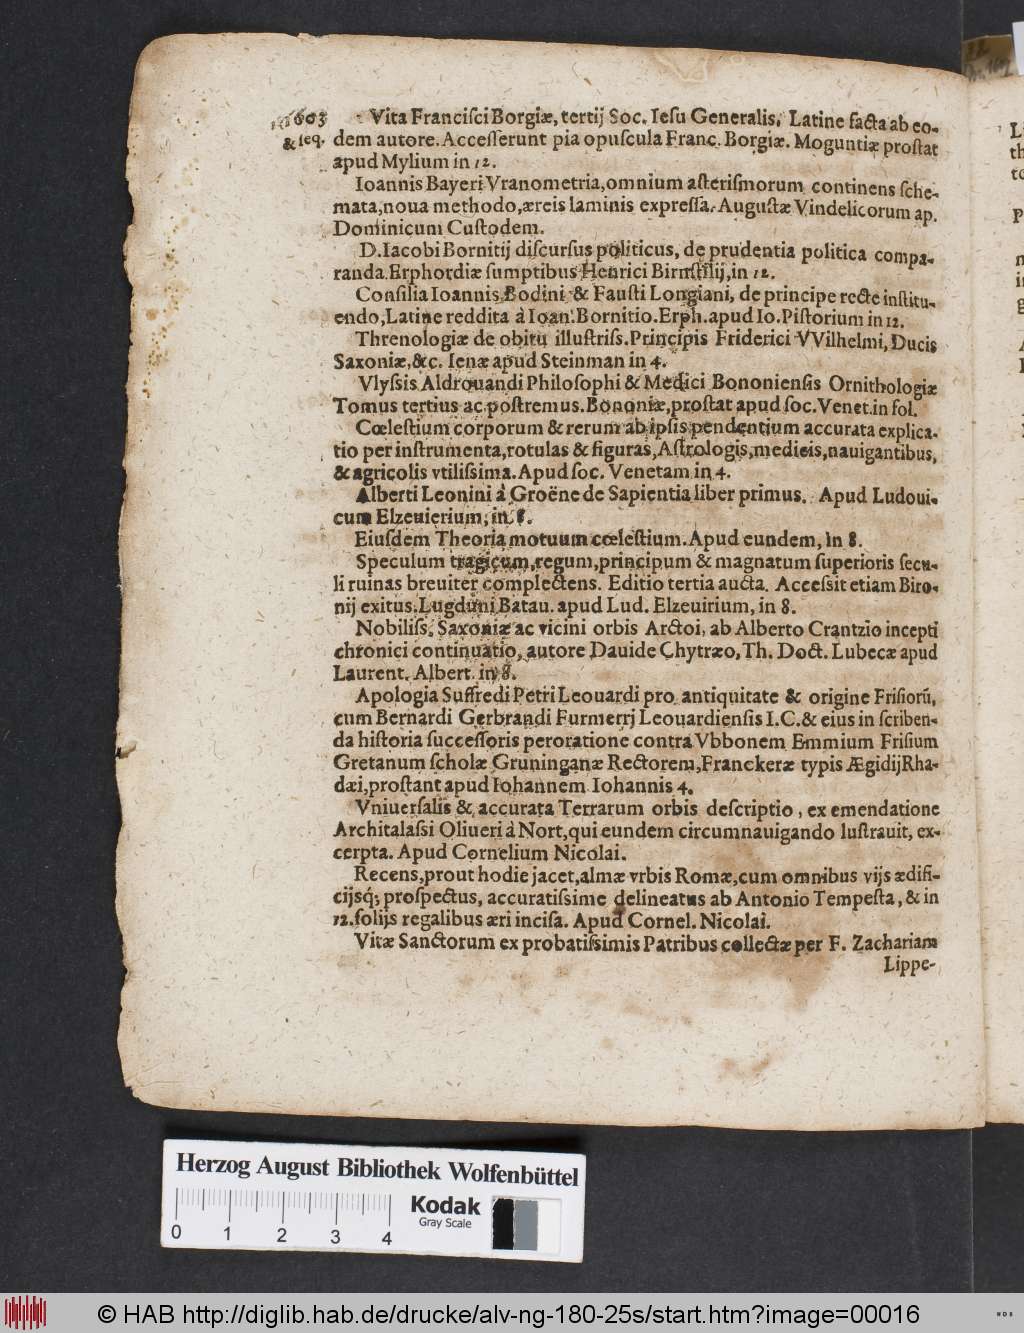 1603
& seq.
Vita Francisci Borgiæ, tertij Soc. Iesu Generalis. Latine facta ab eo-
dem autore. Accesserunt pia opuscula Franc. Borgiæ. Moguntiæ prostat
apud Mylium in 12.
Ioannis Bayeri Vranometria, omnium asterismorum continens sche-
mata, noua methodo, æreis laminis expressa. Augustæ Vindelicorum ap.
Dominicum Custodem.
D. Iacobi Bornitij discursus politicus, de prudentia politica compa-
randa. Erphordiæ sumptibus Henrici Birnstilij, in 12.
Consilia Ioannis Bodini & Fausti Longiani, de principe recte institu-
endo, Latine reddita à Ioan. Bornitio. Erph. apud Io. Pistorium in 12.
Threnologiæ de obitu illustriss. Principis Friderici VVilhelmi, Ducis
Saxoniæ, &c. Ienæ apud Steinman in 4.
Vlyssis Aldrouandi Philosophi & Medici Bononiensis Ornithologiæ
Tomus tertius ac postremus. Bononiæ, prostat apud soc. Venet. in fol.
Cœlestium corporum & rerum ab ipsis pendentium accurata explica-
tio per instrumenta, rotulas & figuras, Astrologis, medicis, nauigantibus,
& agricolis vtilissima. Apud soc. Venetam in 4.
Alberti Leonini à Groëne de Sapientia liber primus. Apud Ludoui-
cum Elzeuierium, in 8.
Eiusdem Theoria motuum cœlestium. Apud eundem, in 8.
Speculum tragicum, regum, principum & magnatum superioris secu-
li ruinas breuiter complectens. Editio tertia aucta. Accessit etiam Biro-
nij exitus. Lugduni Batau. apud Lud. Elzeuirium, in 8.
Nobiliss. Saxoniæ ac vicini orbis Arctoi, ab Alberto Crantzio incepti
chronici continuatio, autore Dauide Chytræo, Th. Doct. Lubecæ apud
Laurent. Albert. in 8.
Apologia Suffredi Petri Leouardi pro antiquitate & origine Frisiorū,
cum Bernardi Gerbrandi Furmerij Leouardiensis I.C. & eius in scriben-
da historia successoris peroratione contra Vbbonem Emmium Frisium
Gretanum scholæ Gruninganæ Rectorem, Franekeræ typis Ægidij Rha-
dæi, prostant apud Iohannem Iohannis 4.
Vniuersalis & accurata Terrarum orbis descriptio, ex emendatione
Architalassi Oliueri à Nort, qui eundem circumnauigando lustrauit, ex-
cerpta. Apud Cornelium Nicolai.
Recens, prout hodie jacet, almæ vrbis Romæ, cum omnibus vijs ædifi-
cijsq́; prospectus, accuratissime delineatus ab Antonio Tempesta, & in
12. folijs regalibus æri incisa. Apud Cornel. Nicolai.
Vitæ Sanctorum ex probatissimis Patribus collectæ per F. Zachariam
Lippe-
Herzog August Bibliothek Wolfenbüttel
0 1 2 3 4
Kodak
Gray Scale
© HAB http://diglib.hab.de/drucke/alv-ng-180-25s/start.htm?image=00016